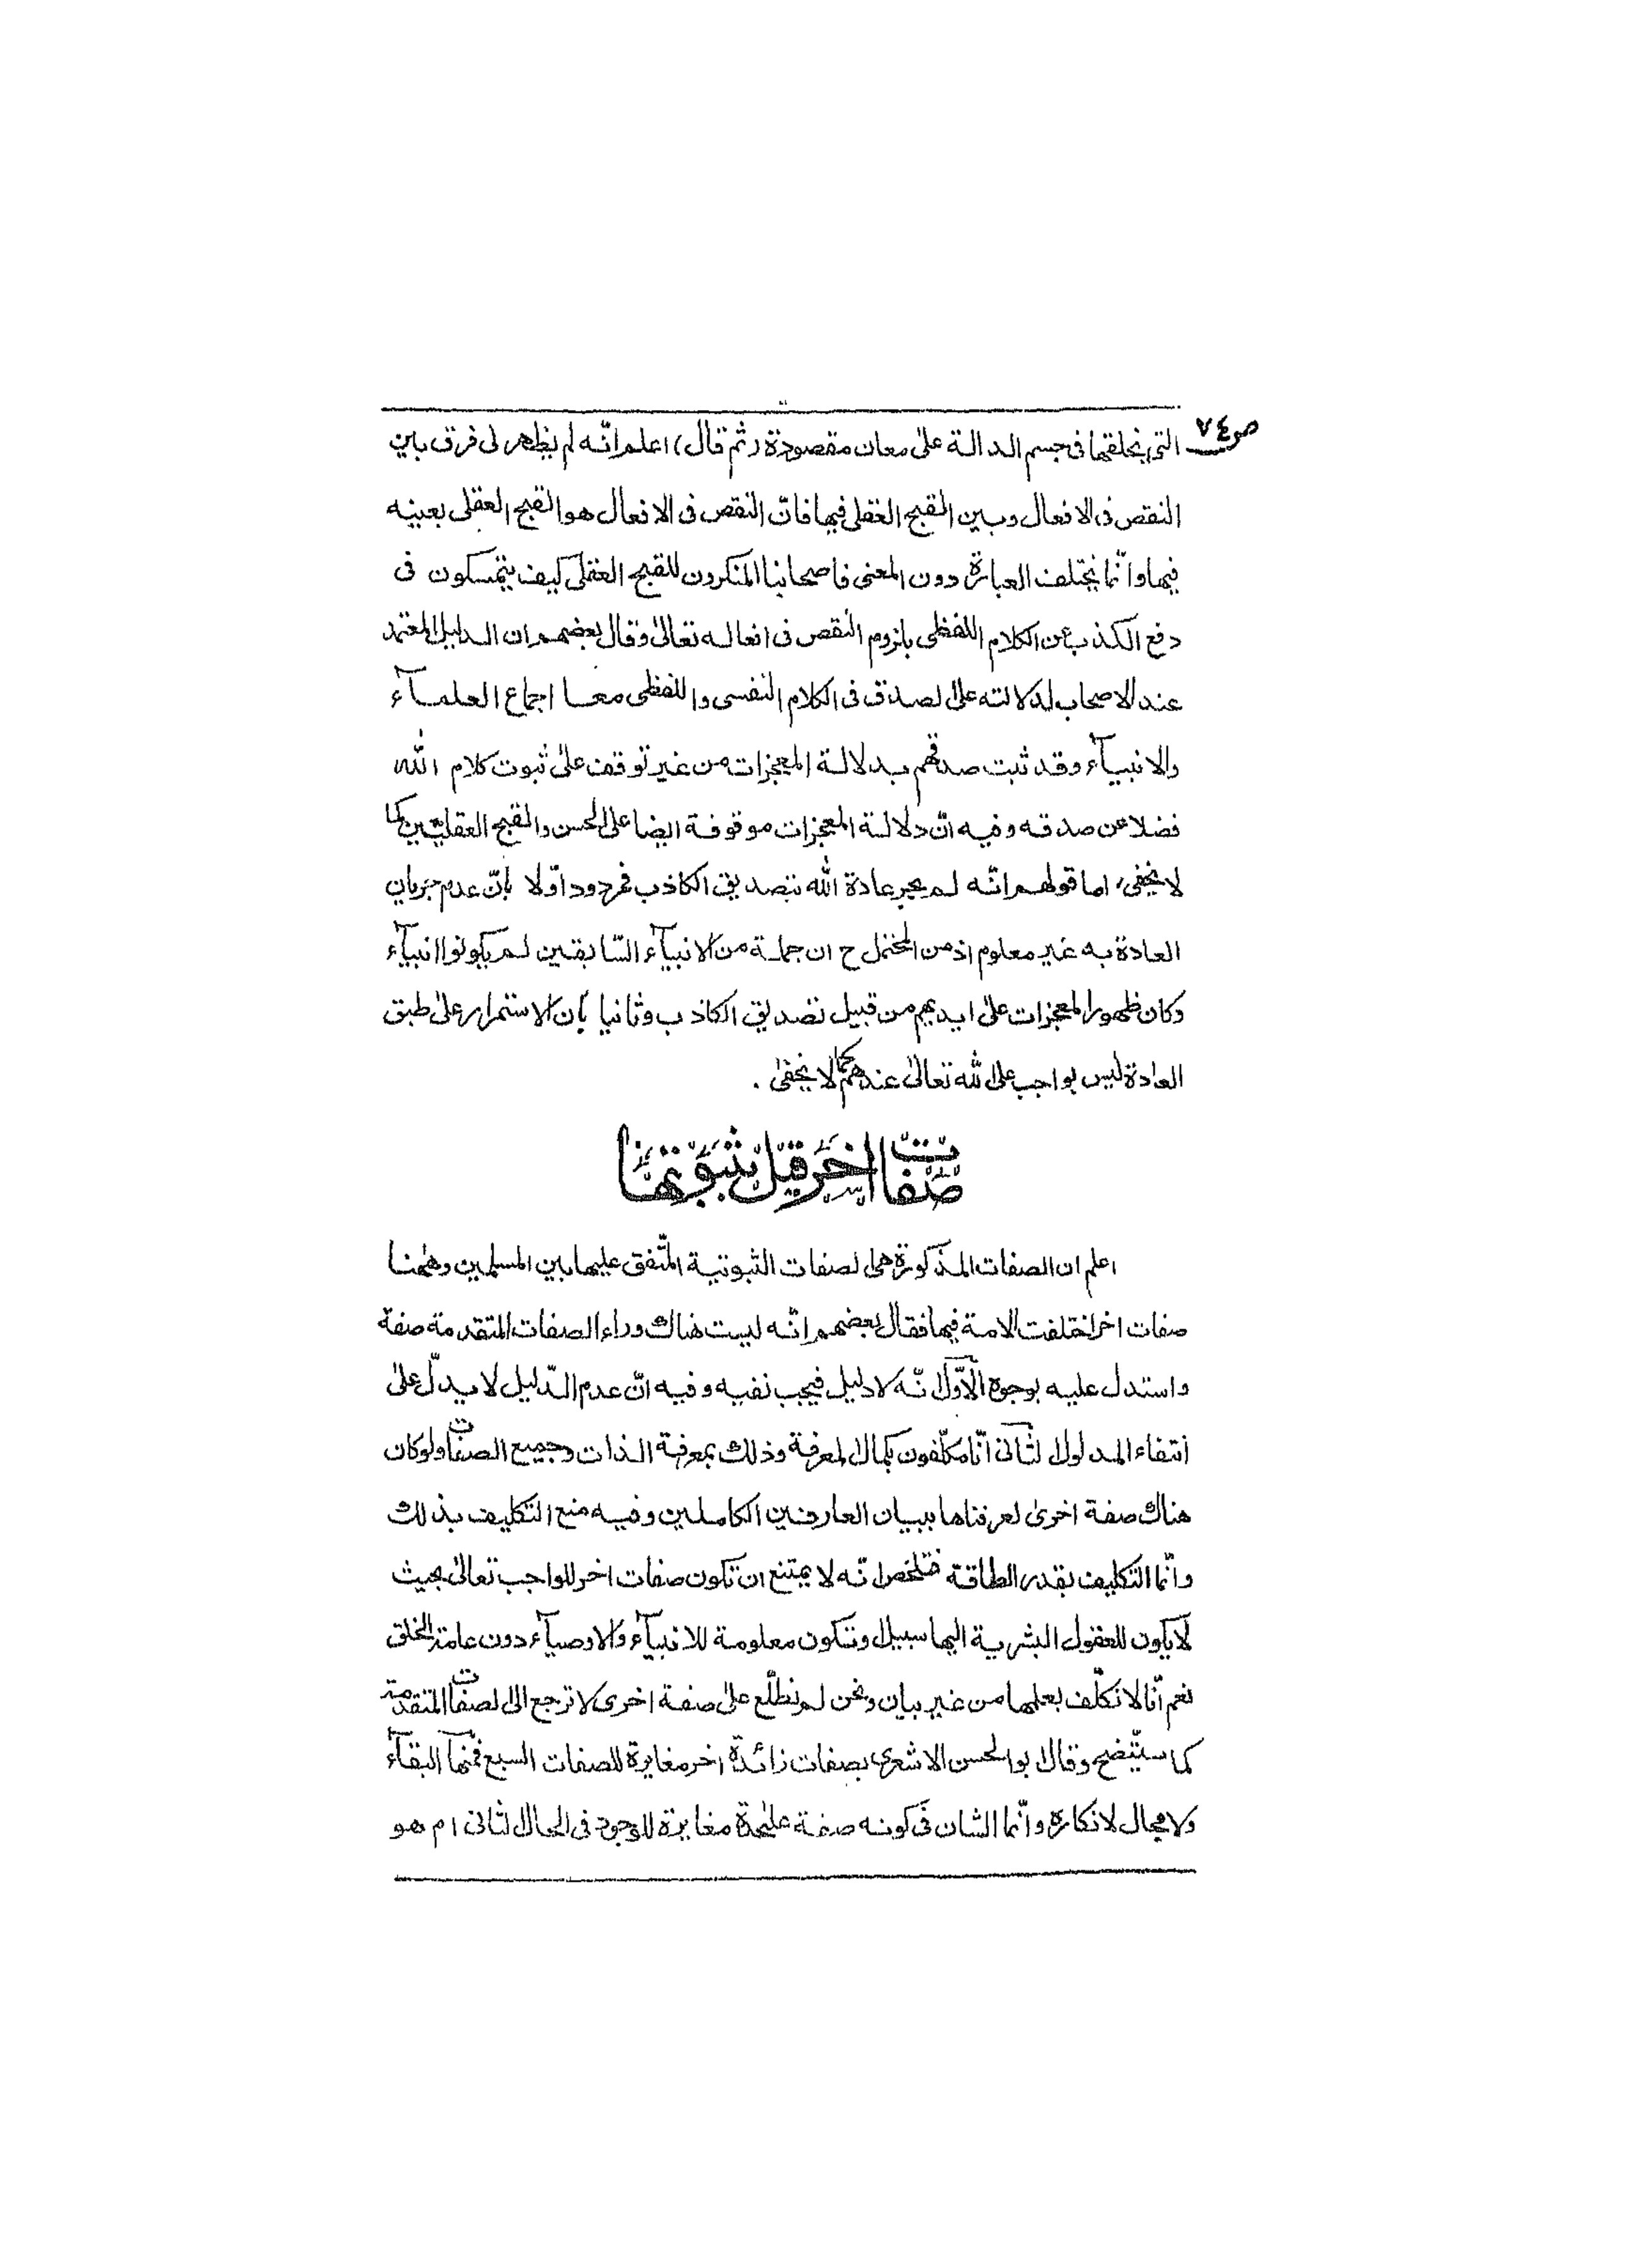 ص٧٤
التى يخلقها فى جسم الدالة على معان مقصودة (ثم قال) اعلم انّه لم يظهر لى فرق بين
النقص فى الافعال وبين القبح العقلى فيها فانّ النقص فى الافعال هو القبح العقلى بعينه
فيها وانّما يختلف العبارة دون المعنى فاصحابنا المنكرون للقبح العقلى كيف يتمسكون فى
دفع الكذب عن الكلام اللفظى بلزوم النقص فى افعاله تعالى وقال بعضهم ان الدليل المعتمد
عند الاصحاب لدلالته على الصدق فى الكلام النفسى واللفظى معا اجماع العلمآء
والانبيآء وقد ثبت صدقهم بدلالة المعجزات من غير توقف على ثبوت كلام الله
فضلا عن صدقه وفيه انّ دلالة المعجزات موقوفة ايضا على الحسن والقبح العقليين كما
لا يخفى، اما قولهم انّه لم يجر عادة الله بتصديق الكاذب فمردود اوّلا بانّ عدم جريان
العادة به غير معلوم اذ من المحتمل ح ان جملة من الانبيآء السّابقين لم يكونوا انبيآء
وكان ظهور المعجزات على ايديهم من قبيل تصديق الكاذب وثانيا بان الاستمرار على طبق
العادة ليس بواجب على الله تعالى عندهم كما لا يخفى .
صفات اخر قيل بثبوتها
اعلم ان الصفات المذكورة هى الصفات الثبوتية المتّفق عليها بين المسلمين وههنا
صفات اخر اختلفت الامة فيها فقال بعضهم انّه ليست هناك وراء الصفات المتقدمة صفة
واستدل عليه بوجوه الاوّل انّه لا دليل فيجب نفيه وفيه انّ عدم الدّليل لا يدلّ على
انتفاء المدلول الثانى انّا مكلّفون بكمال المعرفة وذلك بمعرفة الذات وجميع الصفات ولو كان
هناك صفة اخرى لعرفناها ببيان العارفين الكاملين وفيه منع التكليف بذلك
وانّما التكليف بقدر الطاقة فتلخص انّه لا يمتنع ان تكون صفات اخر للواجب تعالى بحيث
لا يكون للعقول البشرية اليها سبيل وتكون معلومة للانبيآء والاوصيآء دون عامة الخلق
نعم انّا لا نكلّف بعلمها من غير بيان ونحن لم نطّلع على صفة اخرى لا ترجع الى الصفات المتقدمة
كما ستتّضح وقال ابو الحسن الاشعرى بصفات زائدة اخر مغايرة للصفات السبع فمنها البقآء
ولا مجال لانكاره وانّما الشان فى كونه صفة عليحدة مغايرة للوجود فى الحال الثانى ام هو